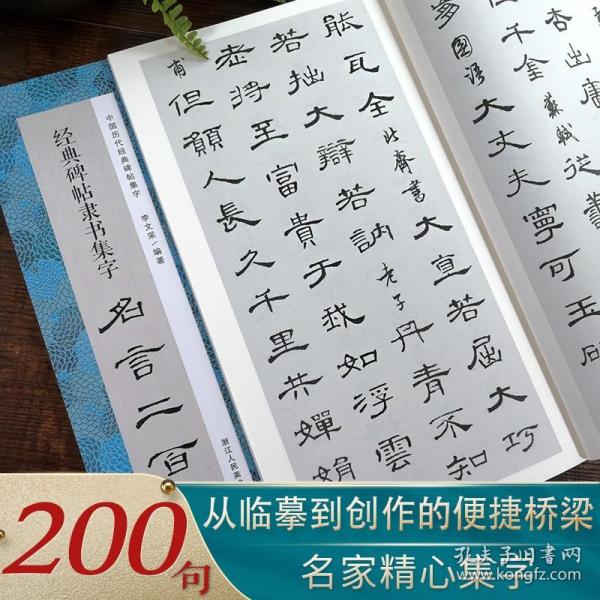 甫
但願人長久千里共嬋娟
老將至富貴于我如浮雲
若拙大辯若訥老子丹青不知
能瓦全北齊書大直若屈大巧
國語大丈夫寧可玉
千金蘇軾從
中国历代经典碑帖集字
李文采/编著
经典碑帖隶书集字
名言二百
浙江人民美
200句
从临摹到创作的便捷桥梁
名家精心集字
孔夫子旧书网
www.kongfz.com